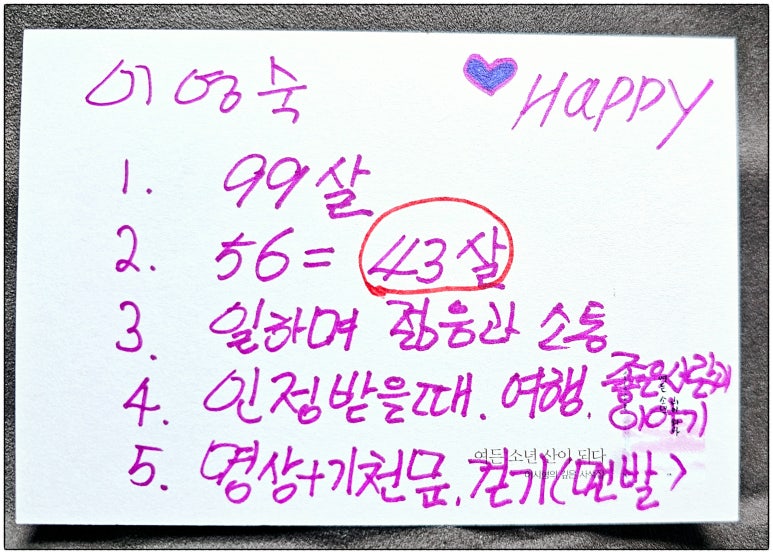 이영숙 ♥ Happy
1. 99살
2. 56 = 43살
3. 일하며 젊음과 소통
4. 인정받을때. 여행. 좋은사람과 이야기
5. 명상+기천문. 걷기(맨발)
여든 소년 산이 된다